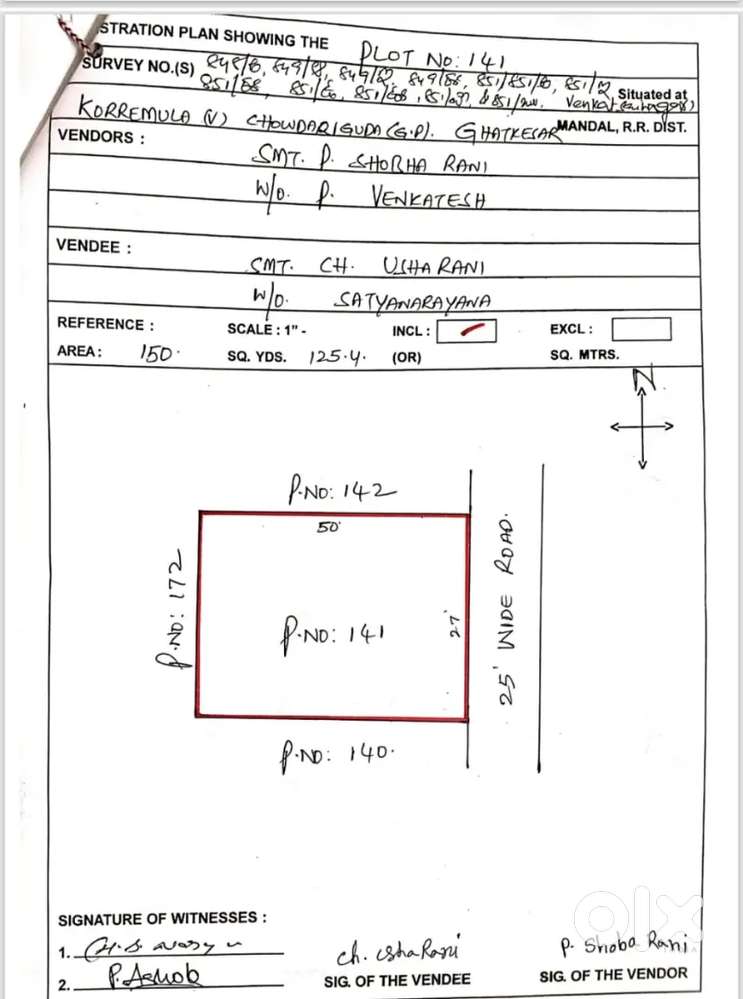 STRATION PLAN SHOWING THE PLOT NO: 141
SURVEY NO.(S)
851/2 Situated at
KORREMULA (V) CHOWDARIGUDA (G.P). GHATKESAR MANDAL, R.R. DIST.
VENDORS :
SMT. P. SHOBHA RANI
W/O. P. VENKATESH
VENDEE :
SMT. CH. USHA RANI
W/O. SATYANARAYANA
REFERENCE : SCALE : 1" - INCL : EXCL :
AREA : 150. SQ. YDS. 125.4. (OR) SQ. MTRS.
N
P.NO: 142
50'
P.NO: 172
P.NO: 141
27'
25' WIDE ROAD.
P.NO: 140.
SIGNATURE OF WITNESSES :
1.
2. P. Ashok
ch. Usha Rani
SIG. OF THE VENDEE
P. Shoba Rani
SIG. OF THE VENDOR
olx